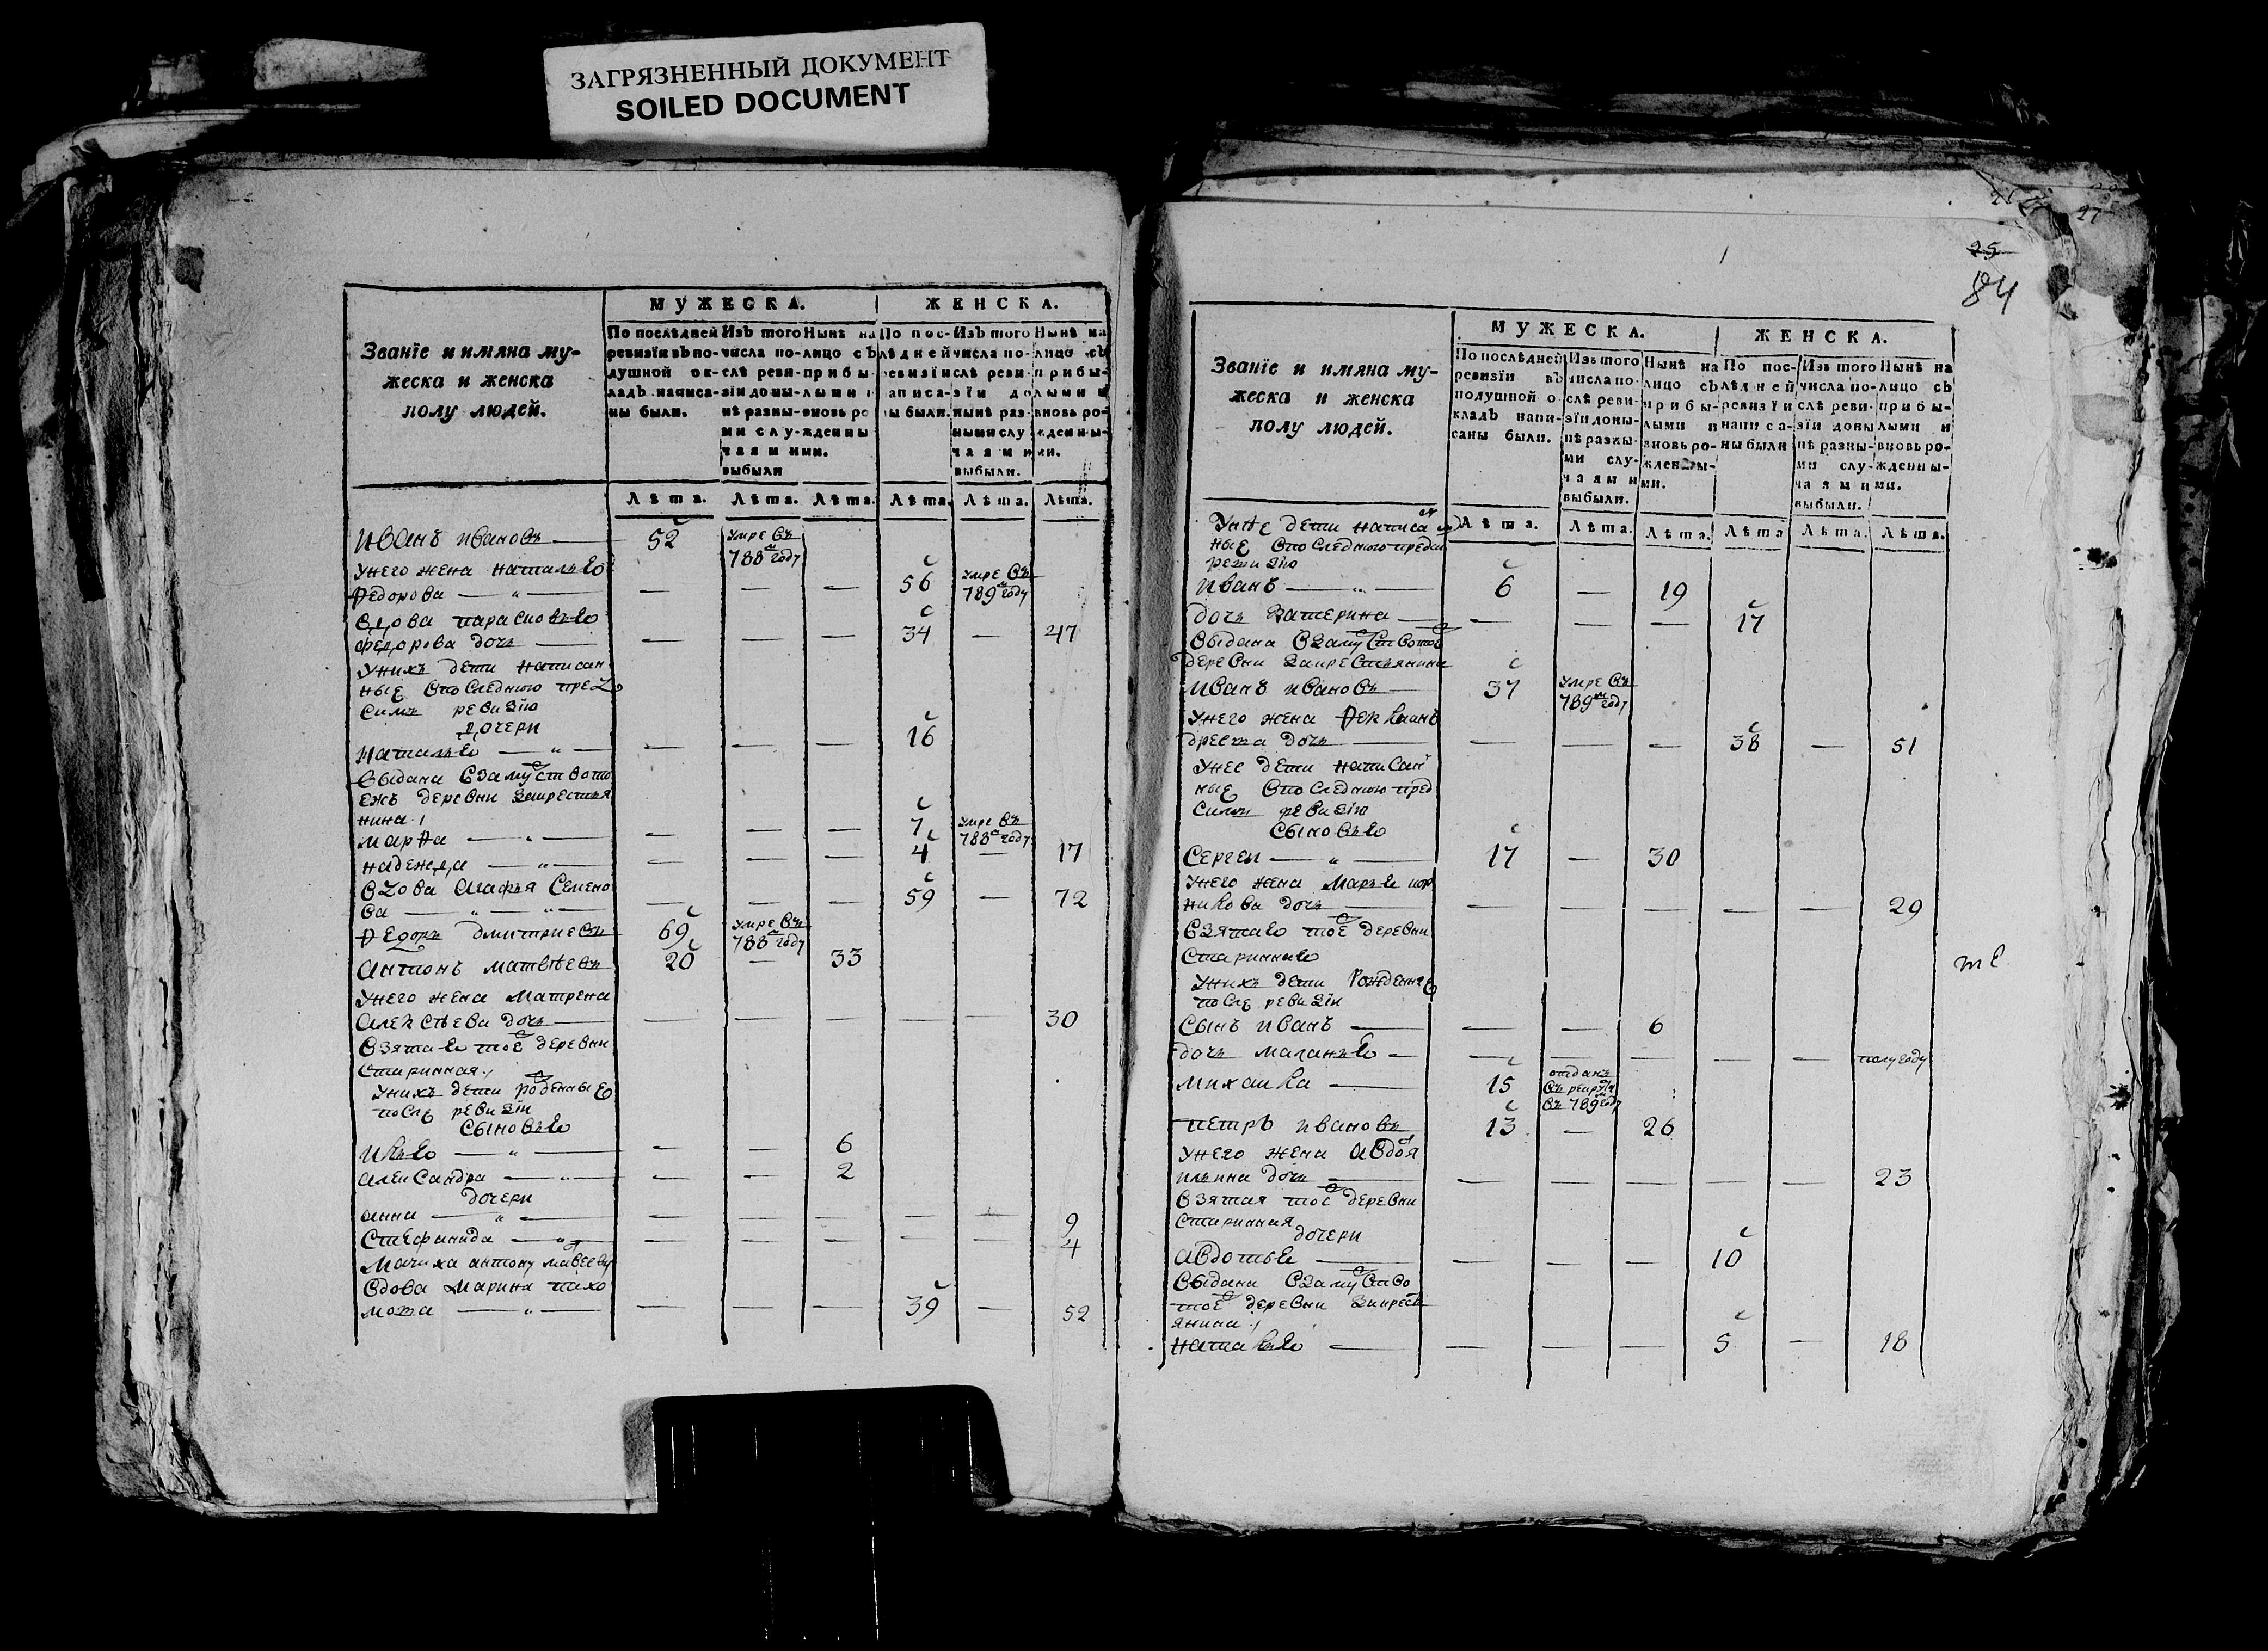 ЗАГРЯЗНЕННЫЙ ДОКУМЕНТ
SOILED DOCUMENT
Званїе и имяна му-
жеска и женска
полу людей.
МУЖЕСКА.
ЖЕНСКА.
По послѣдней ревизїи въ по-
душной ок-
ладъ написа-
ны были.
Изъ того числа по-
слѣ реви-
зїи доны-
нѣ разны-
ми слу-
чаями
выбыли
Нынѣ на лицо съ
прибы-
лыми и
вновь ро
жденны
ми.
По пос-
лѣдней
ревизїи
написа-
ны были.
Изъ того
числа по-
слѣ реви-
зїи до
нынѣ раз-
ными слу
чаями
выбыли.
Нынѣ на
лицо съ
прибы-
лыми и
вновь ро-
жденны-
ми.
Лѣта. Лѣта. Лѣта. Лѣта. Лѣта. Лѣта.
Иванъ ивановъ 52 умре въ 788м году
Унего жена наталья
Федорова — — — 56 умре въ 789м году
вдова парасковья
федорова дочь — — — 34 — 47
Унихъ дети написан
ные впоследнюю пред
симъ ревизїю
дочери
Наталья — — — 16
выдана взамуство то
ежъ деревни закрестья
нина
марфа — — — 7 умре въ 788м году
надежда — — — 4 — 17
вдова агафья семено
ва — — — 59 — 72
Федоръ дмитриевъ 69 умре въ 788м году
Антонъ матвѣевъ 20 — 33
Унего жена матрена
алексѣева дочь — — — — — 30
взятая тоё деревни
старинная
Унихъ дети роденные
после ревизїи
сыновья
илья — — 6
александра — — 2
дочери
анна — — — — — 9
стефанида — — — — — 4
Мачиха антону мавееву
вдова марина тихо
мова — — — 39 — 52
25
84
Званїе и имяна му-
жеска и женска
полу людей.
МУЖЕСКА.
ЖЕНСКА.
По послѣдней
ревизїи въ
подушной о-
кладъ напи-
саны были.
Изъ того
числа по-
слѣ реви-
зїи доны-
нѣ разны-
ми слу-
чаями
выбыли.
Нынѣ на
лицо съ
прибы-
лыми и
вновь ро-
жденны-
ми.
По пос-
лѣдней
ревизїи
написа-
ны были
Изъ того
числа по-
слѣ реви-
зїи доны
нѣ разны-
ми слу-
чаями
выбыли.
Нынѣ на
лицо съ
прибы-
лыми и
вновь ро-
жденны-
ми.
Лѣта. Лѣта. Лѣта. Лѣта Лѣта. Лѣта.
дети написа
ные впоследнюю предси
ревизїю
иванъ 6 — 19
дочь катерина — — — 17
выдана взамуство тоё
деревни закрестьянина
Иванъ ивановъ 37 умре въ 789м году
Унего жена
дочь — — — 38 — 51
Унее дети написан
ные впоследнюю пред
симъ ревизїю
сыновья
Сергеи 17 — 30
Унего жена марья
дочь — — — — — 29
взятая тоё деревни
старинная
Унихъ дети рожденые
после ревизїи
Сынъ иванъ — — 6
дочь маланья — — — — — полугоду
михаила 15 отданъ въ рекруты въ 789м году
петръ ивановъ 13 — 26
унего жена авдотя
ильина дочь — — — — — 23
взятая тоё деревни
старинная
дочери
авдотья — — — 10
выдана взамуство
тоё деревни закресть
янина
наталья — — — 5 — 18
те